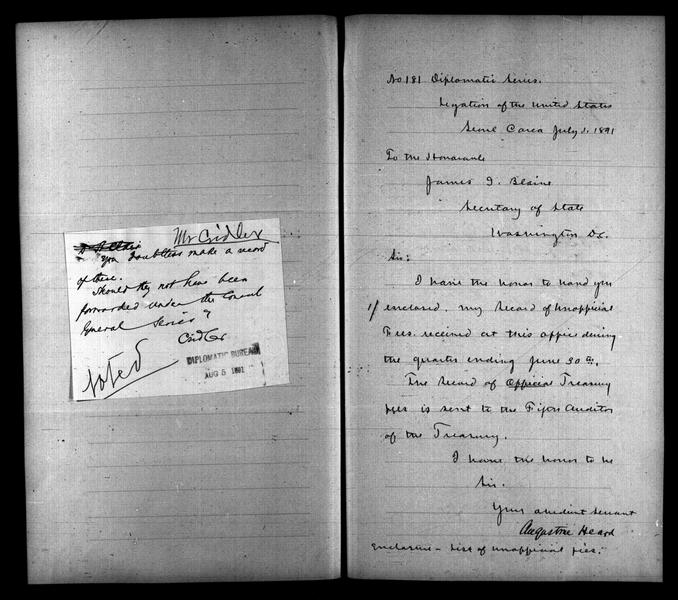 Mr Cridler
You doubtless make a record
of these.
Should they not have been
forwarded under the Consul
General Series?
Cridler
noted
DIPLOMATIC BUREAU
AUG 5 1891
No 181 Diplomatic Series.
Legation of the United States
Seoul Corea July 1. 1891
To the Honorable
James G. Blaine
Secretary of State
Washington D.C.
Sir:
I have the honor to hand you
1/ enclosed, my Record of Unofficial
Fees received at this office during
the quarter ending June 30th.
The Record of Official Treasury
fees is sent to the Fifth Auditor
of the Treasury.
I have the honor to be
Sir.
Your obedient servant
Augustine Heard
Enclosure – List of unofficial fees.